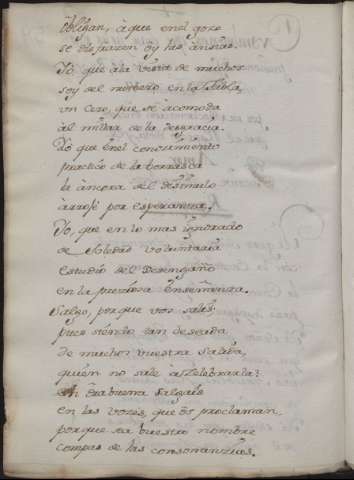 obligan, à que en el gozo
se disfrazen oy las ansias.
Yo que à la vista de muchos
soy del numero en la tabla,
un Cero, que se acomoda
àl millar de la desgracia.
Yo que en el conocimiento
practico de la borrasca
la àncora del dissimulo
àrrojè por esperanza.
Yo, que en lo mas ignorado
de soledad voluntaria
estudio del Desengaño
en la precissa enseñanza.
Salgo, porque vos salis,
pues siendo tan deseada
de muchos vuestra Salida,
quièn no sale à zelebrarla?
En óra buena Salgais
en las vozes, que òs proclaman,
porque sea vuestro nombre
compas de las consonanzias.